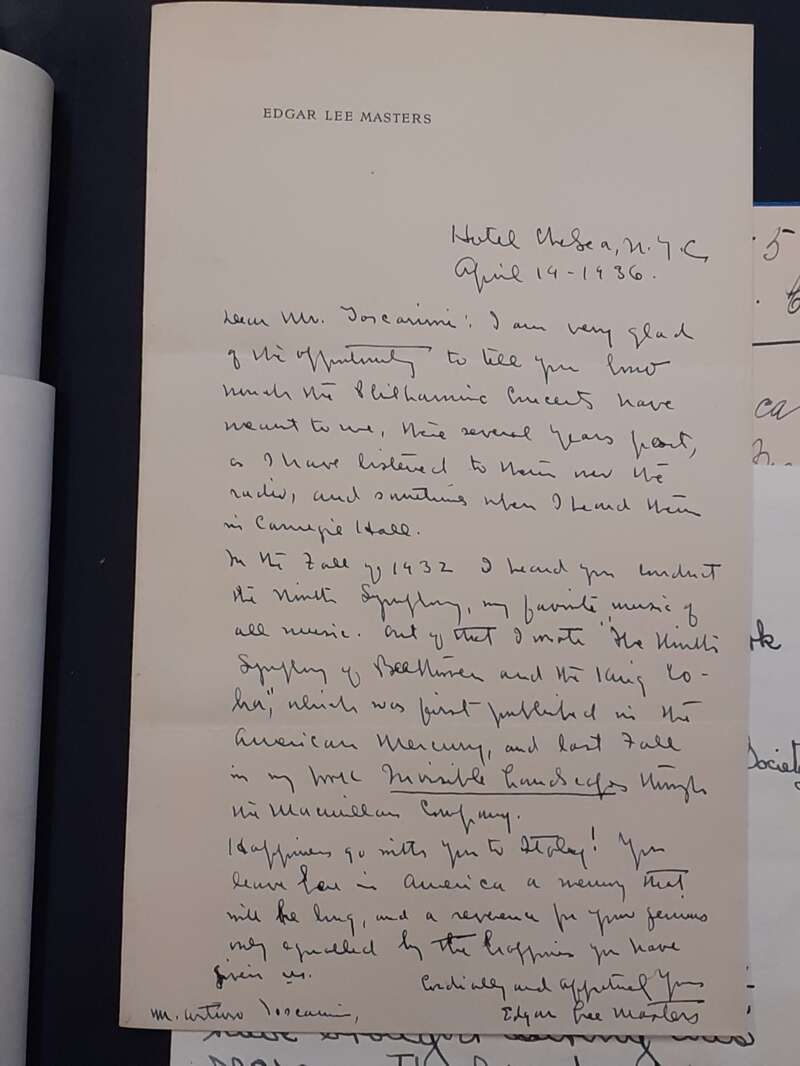 EDGAR LEE MASTERS
Hotel Chelsea, N.Y.C.
April 19-1936.
Dear Mr. Toscanini: I am very glad
of the opportunity to tell you how
much the Philharmonic Concerts have
meant to me, these several years past,
as I have listened to them over the
radio, and sometimes when I heard them
in Carnegie Hall.
In the Fall of 1932 I heard you conduct
the Ninth Symphony, my favorite music of
all music. Out of that I wrote "The Ninth
Symphony of Beethoven and the King Co-
bra", which was first published in the
American Mercury, and last Fall
in my book Invisible Landscapes through
the Macmillan Company.
Happiness go with you to Italy! You
leave here in America a memory that
will be long, and a reverence for your genius
only equalled by the happiness you have
given us.
Cordially and Yours
M. Arturo Toscanini,
Edgar Lee Masters
5
ca
rk
Society